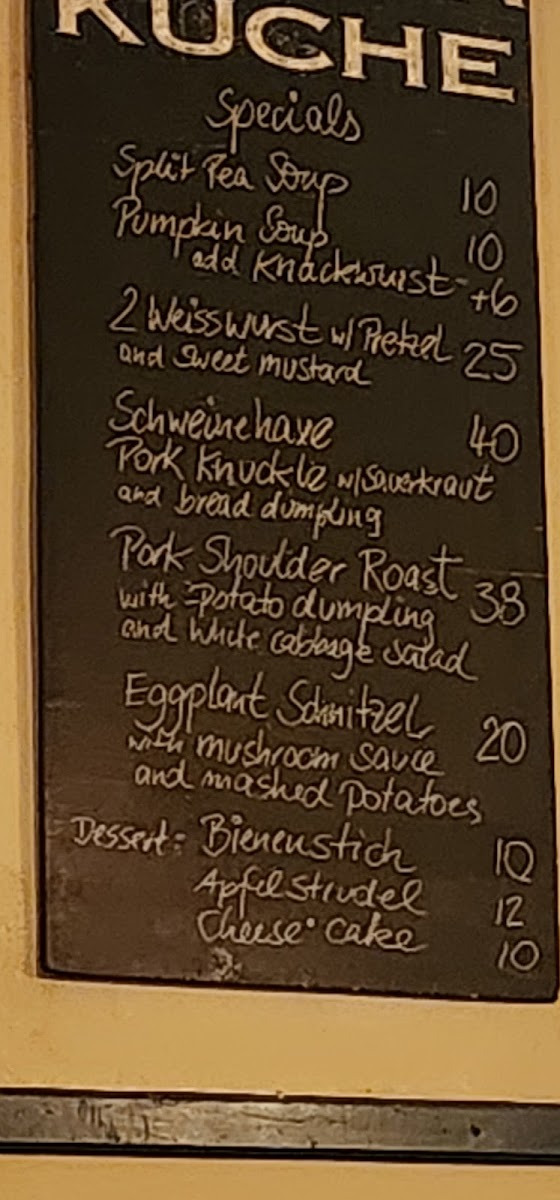 KÜCHE
Specials
Split Pea Soup 10
Pumpkin Soup 10
add Knackwurst +6
2 Weisswurst w/ Pretzel 25
and sweet mustard
Schweinehaxe 40
Pork Knuckle w/ Sauerkraut
and bread dumpling
Pork Shoulder Roast 38
with Potato dumpling
and white cabbage salad
Eggplant Schnitzel 20
with mushroom sauce
and mashed potatoes
Dessert: Bienenstich 10
Apfelstrudel 12
Cheese cake 10